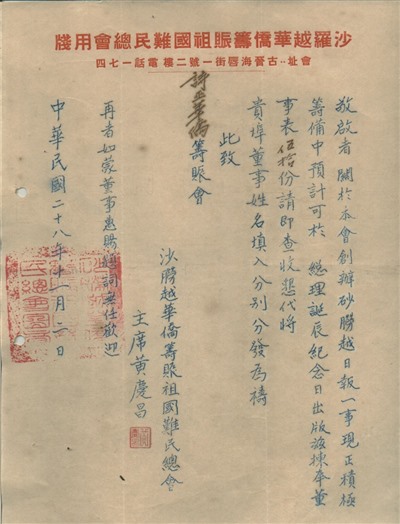 沙羅越華僑籌賑祖國難民總會用牋
會址：古晉海唇街一號二樓 電話一七四
敬啟者 關於本會創辦砂朥越日報一事現正積極
籌備中預計可於 總理誕辰紀念日出版茲揀奉董
事表伍拾份請即查收懇代將
貴埠董事姓名填入分別分發為禱
此致
詩巫華僑籌賑會
沙朥越華僑籌賑祖國難民總會
主席黃慶昌
再者如蒙董事惠賜 詞無任歡迎
中華民國二十八年十一月二日